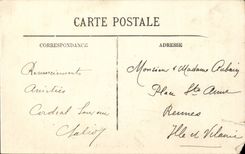 CARTE POSTALE
CORRESPONDANCE
ADRESSE
Remerciements
Amitiés
Cordial
Monsieur & Madame
Place Ste Anne
Rennes
Ille et Vilaine